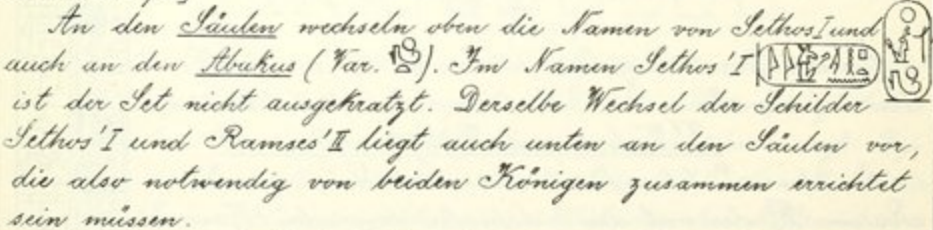 An den Säulen wechseln oben die Namen von Sethos I und
auch an den Abakus (Var. ). Im Namen Sethos' I
ist der Set nicht ausgekratzt. Derselbe Wechsel der Schilder
Sethos' I und Ramses' II liegt auch unten an den Säulen vor,
die also notwendig von beiden Königen zusammen errichtet
sein müssen.